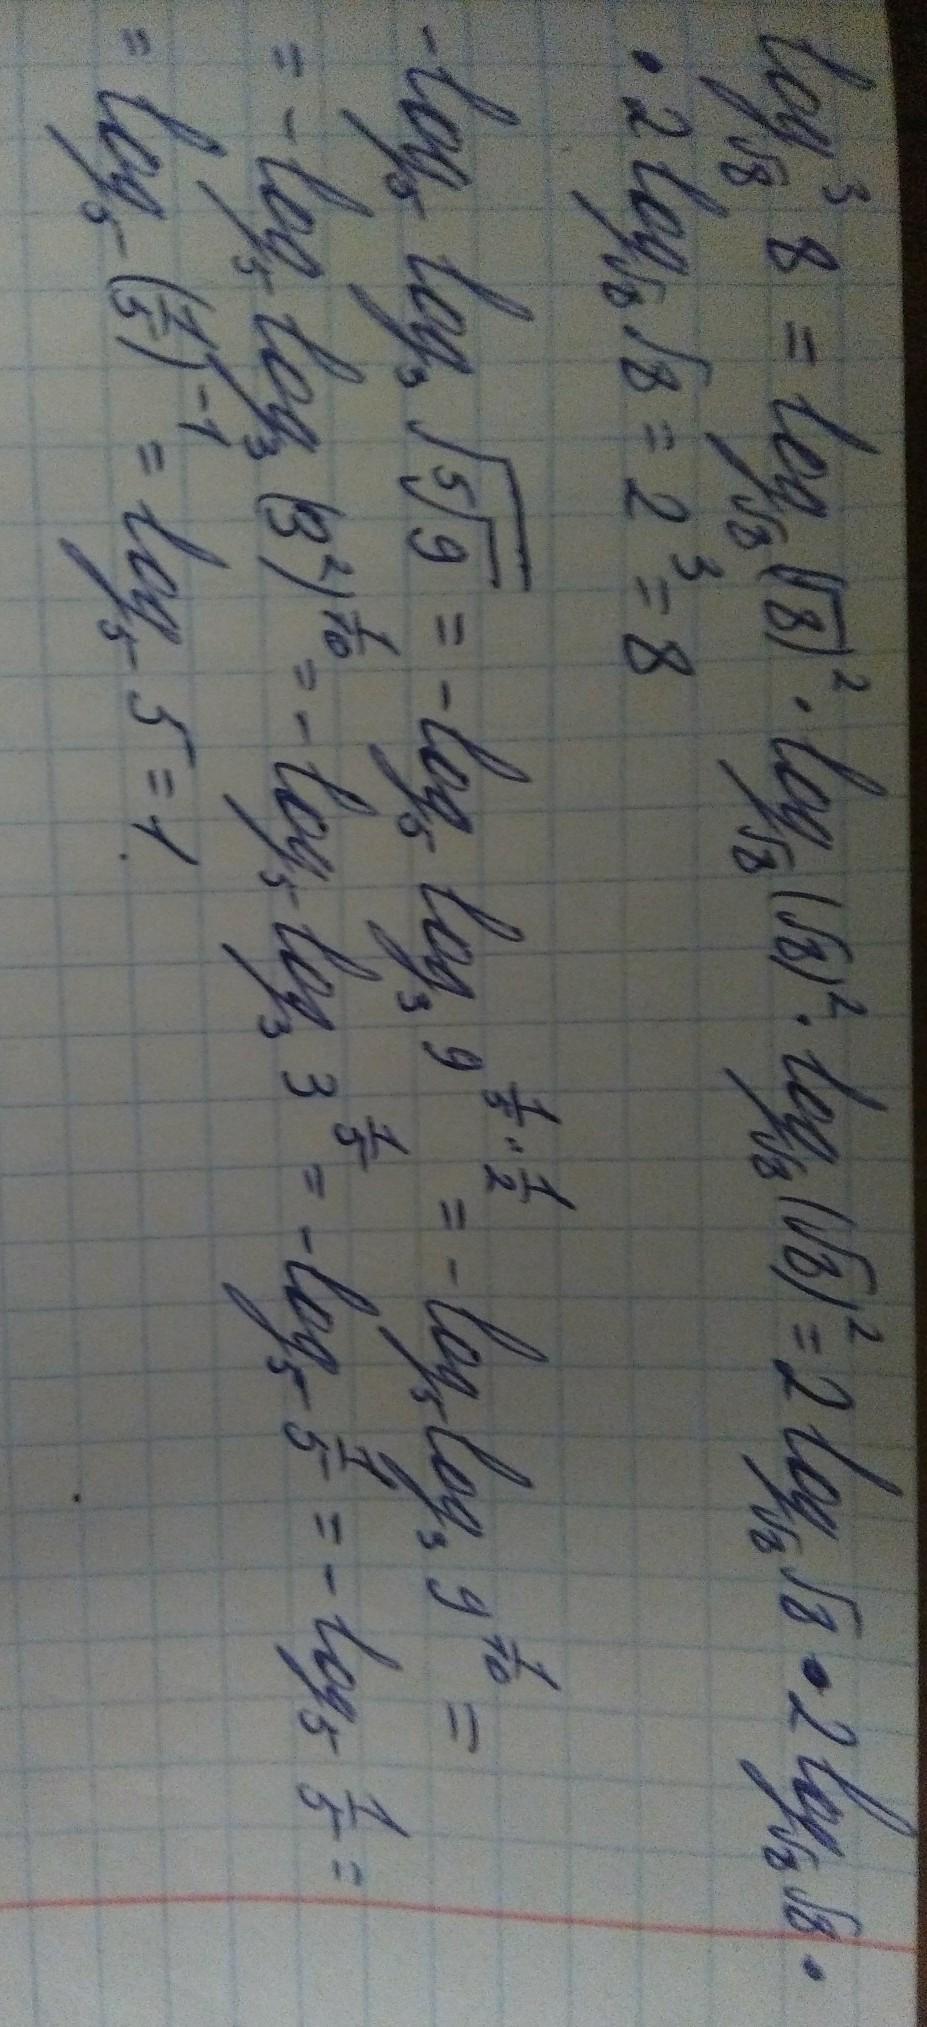 log³_√8 8 = log_√8 (√8)² · log_√8 (√8)² · log_√8 (√8)² = 2 log_√8 √8 · 2 log_√8 √8 ·
· 2 log_√8 √8 = 2³ = 8
- log₅ log₃ √(⁵√9) = - log₅ log₃ 9^(1/5 · 1/2) = - log₅ log₃ 9^(1/10) =
= - log₅ log₃ (3²)^(1/10) = - log₅ log₃ 3^(1/5) = - log₅ 5⁻¹ = - log₅ 1/5 =
= log₅ (1/5)⁻¹ = log₅ 5 = 1